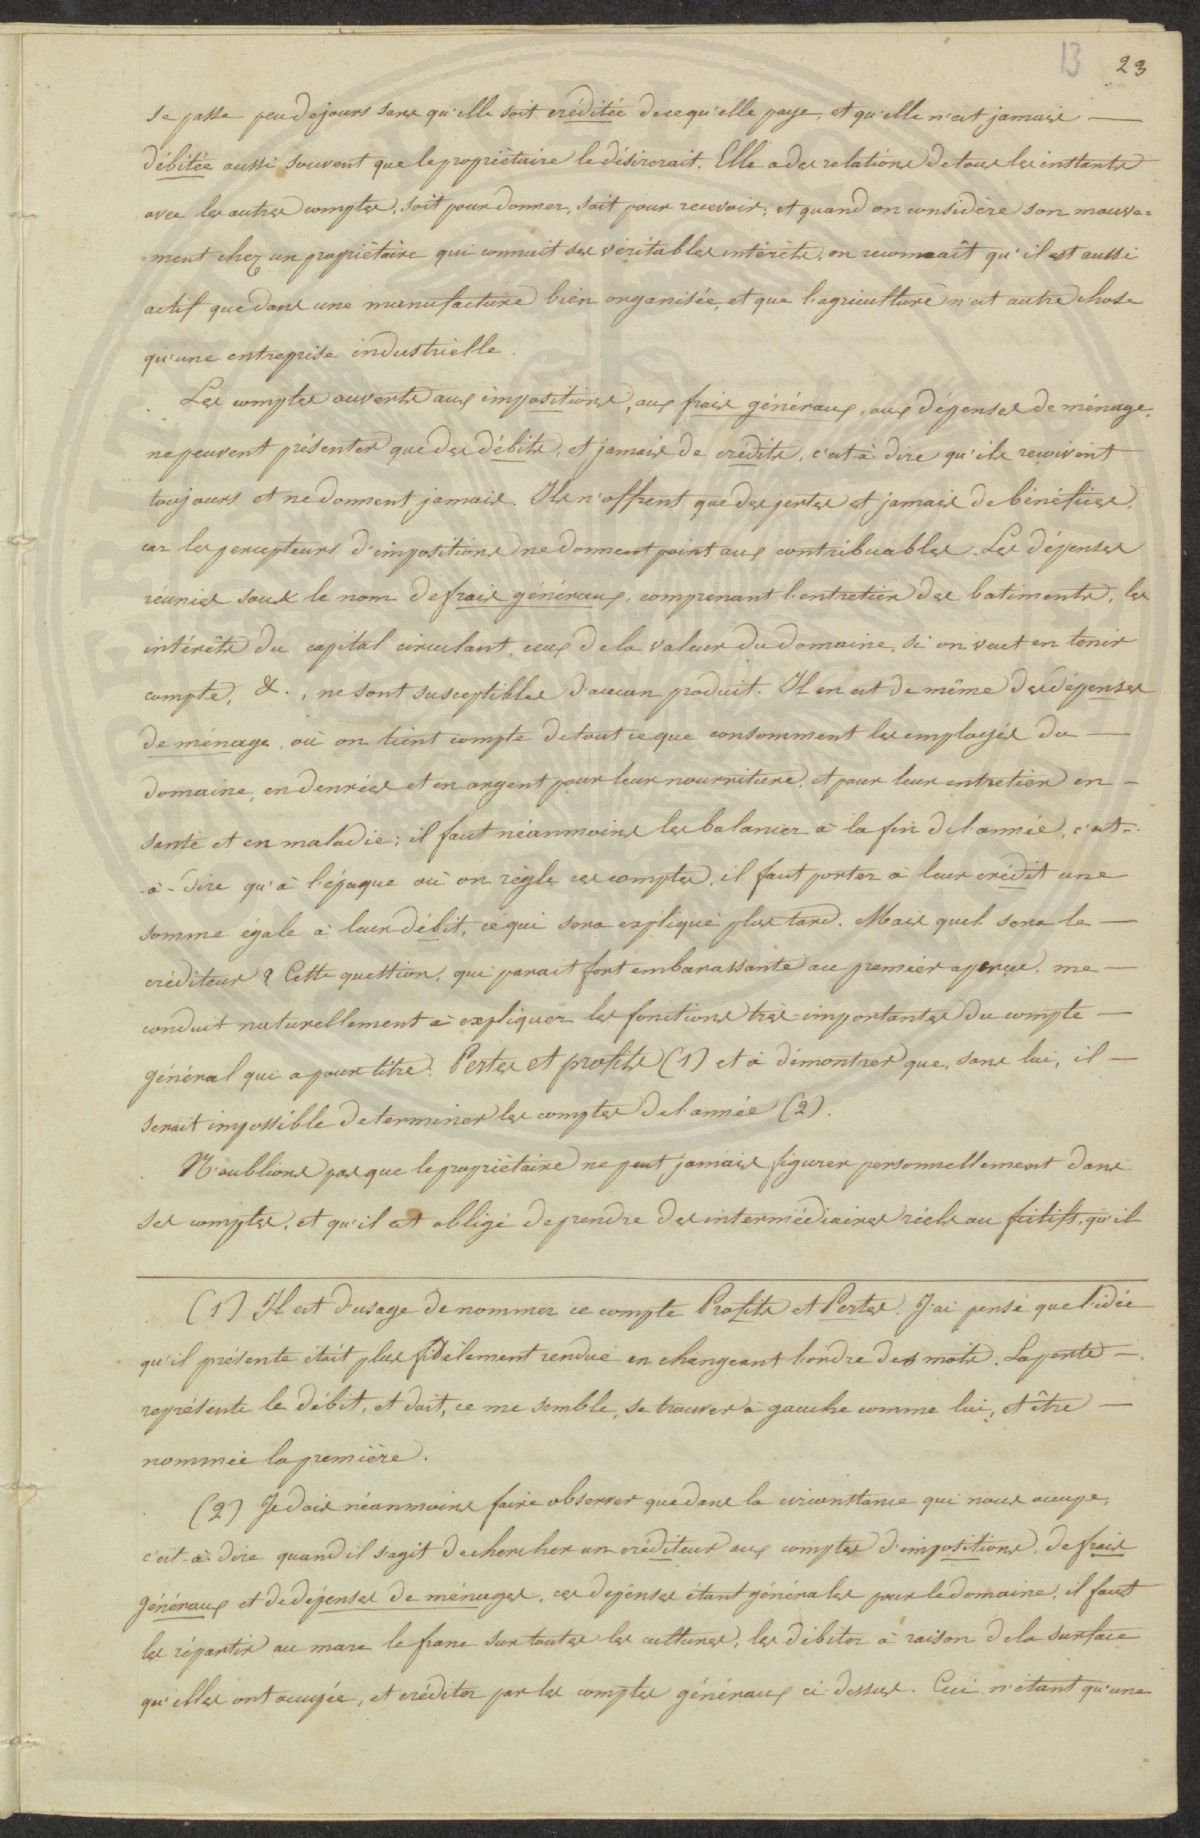 13 23
se passe peu de jours sans qu'elle soit créditée de ce qu'elle paye, et qu'elle n'est jamais —
débitée aussi souvent que le propriétaire le désirerait. Elle a des relations de tous les instants
avec les autres comptes, soit pour donner, soit pour recevoir; et quand on considère son mouve=
=ment chez un propriétaire qui connait ses véritables intérêts, on reconnaît qu'il est aussi
actif que dans une manufacture bien organisée, et que l'agriculture n'est autre chose
qu'une entreprise industrielle.
Les comptes ouverts aux impositions, aux frais généraux, aux dépenses de ménage,
ne peuvent présenter que des débits, et jamais de crédits, c'est à dire qu'ils reçoivent
toujours et ne donnent jamais. Ils n'offrent que des pertes et jamais de bénéfices,
car les percepteurs d'impositions ne donnent point aux contribuables. Les dépenses
réunies sous le nom de frais généraux, comprenant l'entretien des batiments, les
intérêts du capital circulant, ceux de la valeur du domaine, si on veut en tenir
compte, &., ne sont susceptibles d'aucun produit. Il en est de même des dépenses
de ménage, où on tient compte de tout ce que consomment les employés du —
domaine, en denrées et en argent pour leur nourriture, et pour leur entretien en —
santé et en maladie; il faut néanmoins les balancer à la fin de l'année, c'est-
-à-dire qu'à l'époque où on règle ces comptes, il faut porter à leur crédit une
somme égale à leur débit, ce qui sera expliqué plus tard. Mais quel sera le —
créditeur? Cette question, qui parait fort embarassante au premier aperçu, me —
conduit naturellement à expliquer les fonctions très-importantes du compte —
général qui a pour titre: Pertes et profits (1) et à démontrer que, sans lui, il —
serait impossible de terminer les comptes de l'année (2).
N'oublions pas que le propriétaire ne peut jamais figurer personnellement dans
ses comptes, et qu'il est obligé de prendre des intermédiaires réels ou fictifs, qu'il
(1) Il est d'usage de nommer ce compte Profits et Pertes. J'ai pensé que l'idée
qu'il présente était plus fidèlement rendue en changeant l'ordre des mots. La perte —
représente le débit, et doit, ce me semble, se trouver à gauche comme lui, et être —
nommée la première.
(2) Je dois néanmoins faire observer que dans la circonstance qui nous occupe,
c'est-à-dire quand il s'agit de chercher un créditeur aux comptes d'impositions, de frais
généraux et de dépenses de ménages, ces depenses étant générales pour le domaine, il faut
les répartir au marc le franc sur toutes les cultures, les débiter à raison de la surface
qu'elles ont occupée, et créditer par les comptes généraux ci dessus. Ceci n'étant qu'une